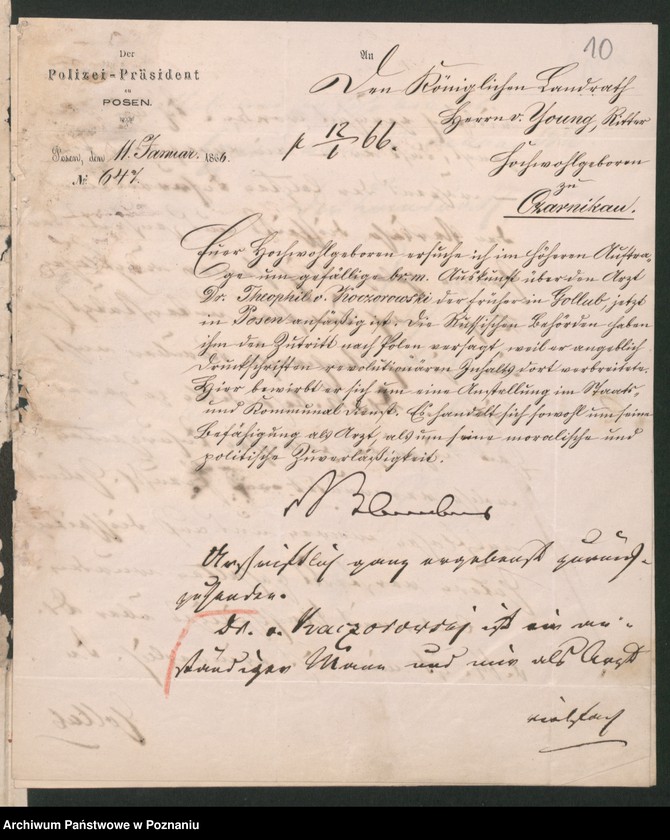 10
Der
Polizei-Präsident
zu
POSEN.
Posen, den 11. Januar. 1866.
№ 647.
An
Den Königlichen Landrath
Herrn v. Young, Ritter
Hochwohlgeboren
zu
Czarnikau.
p 12/1 66.
Euer Hochwohlgeboren ersuche ich im höheren Auftra-
ge um gefällige br. m. Auskunft über den Arzt
Dr. Theophil v. Koczorowski der früher in Gollub, jetzt
in Posen ansäßig ist. Die Russischen Behörden haben
ihm den Zutritt nach Polen versagt, weil er angeblich
Druckschriften revolutionären Inhalts dort verbreitete.
Hier bewirbt er sich um eine Anstellung im Staats-
und Kommunal dienst. Es handelt sich sowohl um seine
Befähigung als Arzt, als um seine moralische und
politische Zuverläßigkeit.
Urschriftlich ganz ergebenst zurück-
zusenden.
Dr. v. Kaczorowski ist ein an-
ständiger Mann und mir als Arzt
vielfach
Archiwum Państwowe w Poznaniu